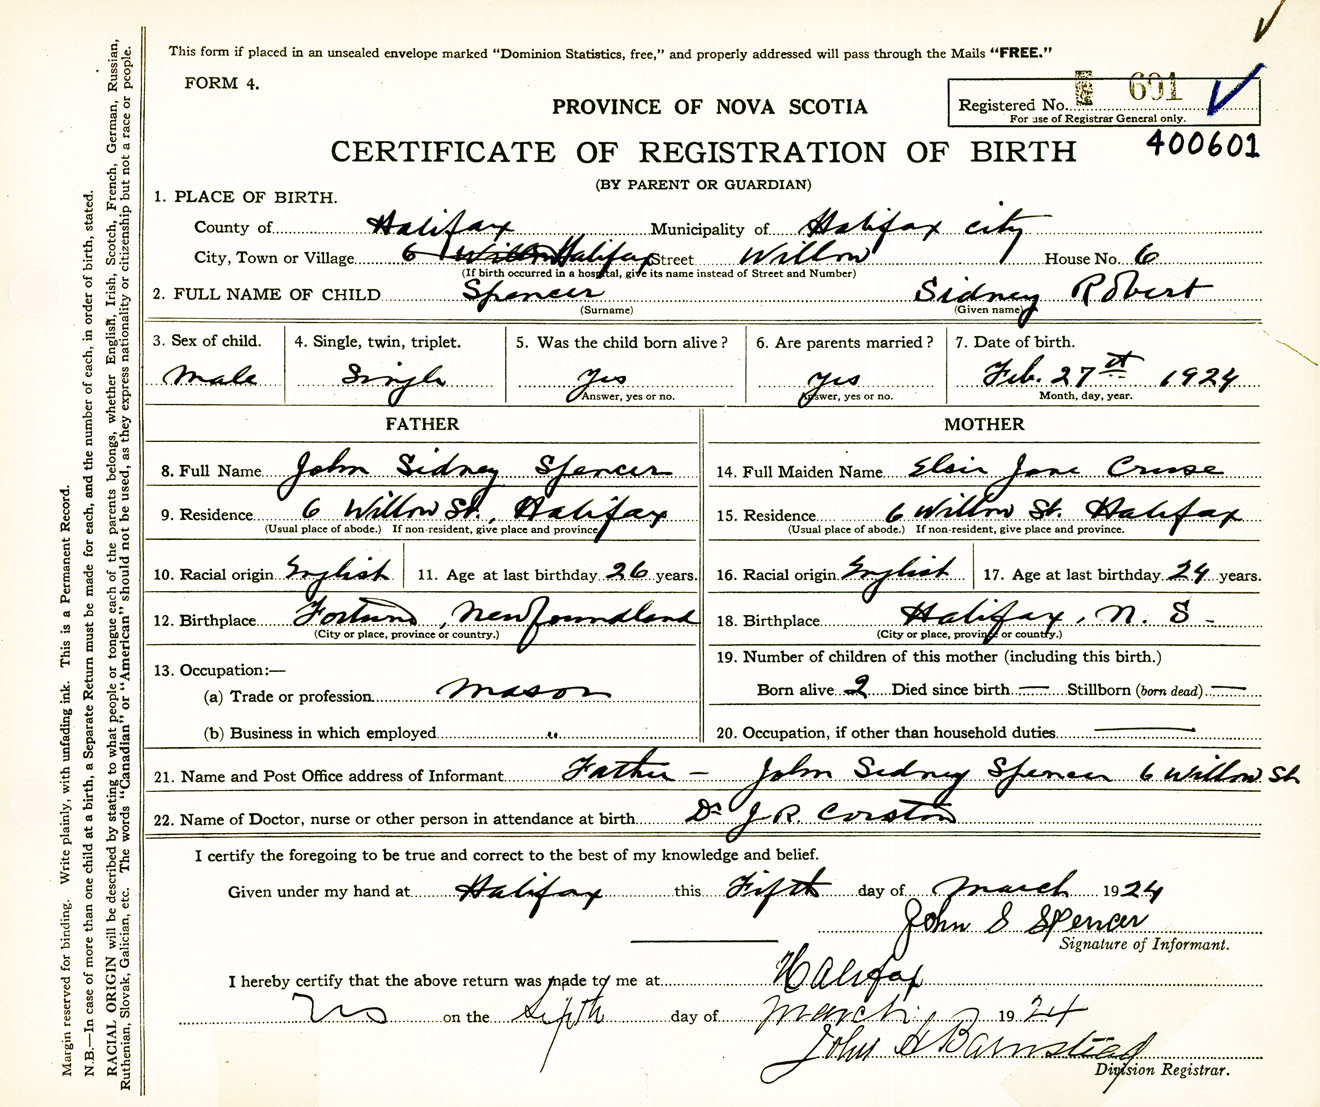 This form if placed in an unsealed envelope marked “Dominion Statistics, free,” and properly addressed will pass through the Mails “FREE.”
FORM 4.
Registered No. 601
For use of Registrar General only.
PROVINCE OF NOVA SCOTIA
400601
CERTIFICATE OF REGISTRATION OF BIRTH
(BY PARENT OR GUARDIAN)
1. PLACE OF BIRTH.
County of Halifax Municipality of Halifax city
City, Town or Village 6 Willow Halifax Street Willow House No. 6
(If birth occurred in a hospital, give its name instead of Street and Number)
2. FULL NAME OF CHILD Spencer Sidney Robert
(Surname) (Given name)
3. Sex of child. 4. Single, twin, triplet. 5. Was the child born alive? 6. Are parents married? 7. Date of birth.
Male Single Yes Yes Feb. 27th 1924
Answer, yes or no. Answer, yes or no. Month, day, year.
FATHER MOTHER
8. Full Name John Sidney Spencer 14. Full Maiden Name Elsie Jane Cruse
9. Residence 6 Willow St., Halifax 15. Residence 6 Willow St. Halifax
(Usual place of abode.) If non-resident, give place and province. (Usual place of abode.) If non-resident, give place and province.
10. Racial origin English 11. Age at last birthday 26 years. 16. Racial origin English 17. Age at last birthday 24 years.
12. Birthplace Fortune, Newfoundland 18. Birthplace Halifax, N. S.
(City or place, province or country.) (City or place, province or country.)
13. Occupation:— 19. Number of children of this mother (including this birth.)
(a) Trade or profession Mason Born alive 2 Died since birth — Stillborn (born dead) —
(b) Business in which employed " 20. Occupation, if other than household duties —
21. Name and Post Office address of Informant Father – John Sidney Spencer 6 Willow St
22. Name of Doctor, nurse or other person in attendance at birth Dr J. R. Corston
I certify the foregoing to be true and correct to the best of my knowledge and belief.
Given under my hand at Halifax this Fifth day of March 1924
John S Spencer
Signature of Informant.
I hereby certify that the above return was made to me at Halifax
NS on the fifth day of March 1924
John H Barnstead
Division Registrar.
Margin reserved for binding. Write plainly, with unfading ink. This is a Permanent Record.
N.B.—In case of more than one child at a birth, a Separate Return must be made for each, and the number of each, in order of birth, stated.
RACIAL ORIGIN will be described by stating to what people or tongue each of the parents belongs, whether English, Irish, Scotch, French, German, Russian,
Ruthenian, Slovak, Galician, etc. The words “Canadian” or “American” should not be used, as they express nationality or citizenship but not a race or people.